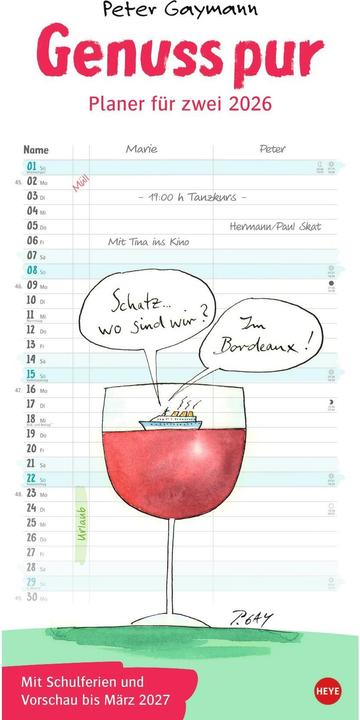 Peter Gaymann
Genuss pur
Planer für zwei 2026
Name Marie Peter
01 So
45. 02 Mo Müll
03 Di - 19:00 h Tanzkurs -
04 Mi
05 Do Hermann/Paul Skat
06 Fr Mit Tina ins Kino
07 Sa
08 So
46. 09 Mo
10 Di
11 Mi
12 Do
13 Fr
14 Sa
15 So
47. 16 Mo
17 Di
18 Mi
19 Do
20 Fr
21 Sa
22 So
48. 23 Mo
24 Di
25 Mi
26 Do
27 Fr
28 Sa
29 So
49. 30 Mo
Urlaub
Schatz...
wo sind wir?
Im
Bordeaux!
P. GAY
Mit Schulferien und
Vorschau bis März 2027
HEYE